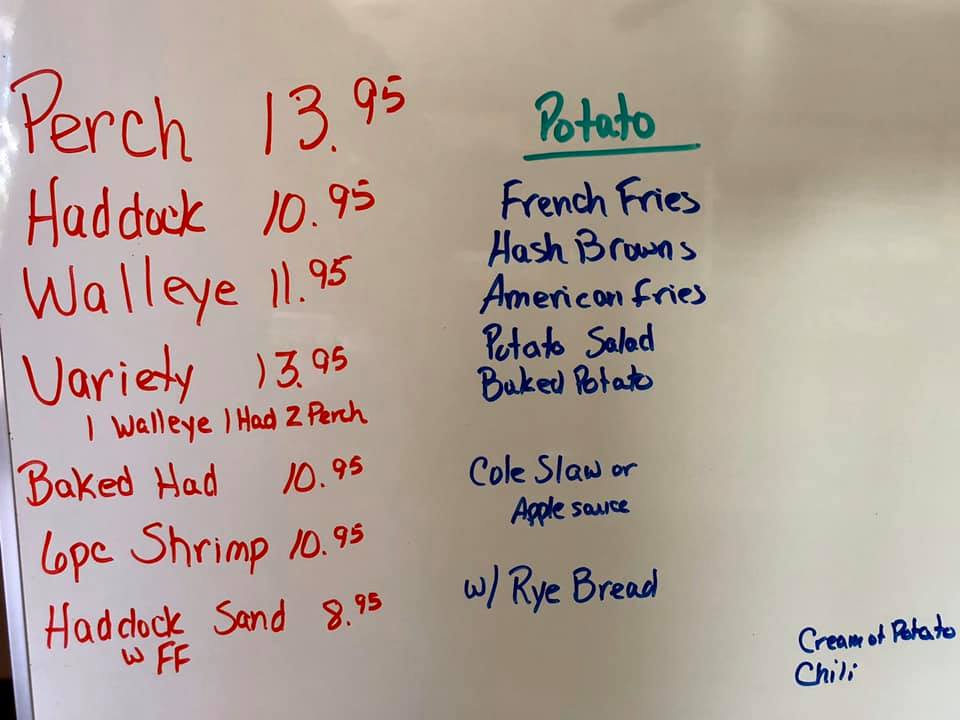 Perch 13.95
Haddock 10.95
Walleye 11.95
Variety 13.95
1 Walleye 1 Had 2 Perch
Baked Had 10.95
6pc Shrimp 10.95
Haddock Sand 8.95
w FF
Potato
French Fries
Hash Browns
American fries
Potato Salad
Baked Potato
Cole Slaw or
Apple sauce
w/ Rye Bread
Cream of Potato
Chili